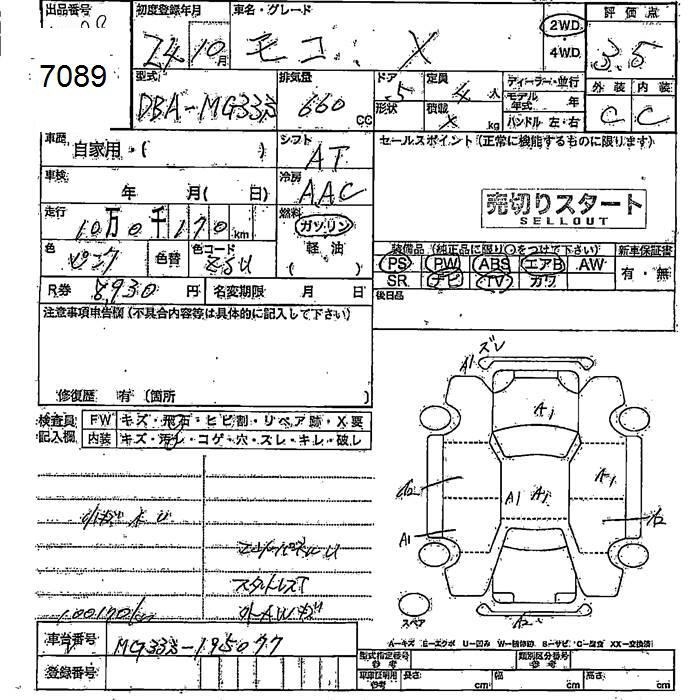 出品番号 初度登録年月 車名・グレード 評価点
7089 24 10月 モコ X 2WD 4WD 3.5
外装 内装
C C
型式 排気量 ドア 定員 ディーラー・並行
DBA-MG33S 660 CC 5 4人 モデル年式 年
形状 積載 X kg ハンドル 左・右
車歴 自家用・( ) シフト AT
セールスポイント(正常に機能するものに限ります)
車検 年 月( 日) 冷房 AAC
売切りスタート
SELLOUT
走行 10万0千170km 燃料 ガソリン
軽油
( )
色 ピンク 色替 色コード
装備品(純正品に限り○をつけて下さい) 新車保証書
PS PW ABS エアB AW 有・無
SR ナビ TV カワ
R券 8930円 名変期限 月 日
後日品
注意事項申告欄(不具合内容等は具体的に記入して下さい)
修復歴 有 (箇所 )
検査員記入欄 FW キズ・飛石・ヒビ割・リペア跡・X要
内装 キズ・汚レ・コゲ・穴・スレ・キレ・破レ
A1 ズレ
A1
A2 A1 A1 A1
A1 A2
スタットレスT
100170km
スペア A2
A-キズ E-エクボ U-凹み W-補修跡 S-サビ C-腐食 XX-交換済
車台番号 MG33S-195077
登録番号
型式指定番号 参考 類別区分番号 参考
車庫証明用 参考 長さ cm 幅 cm 高さ cm